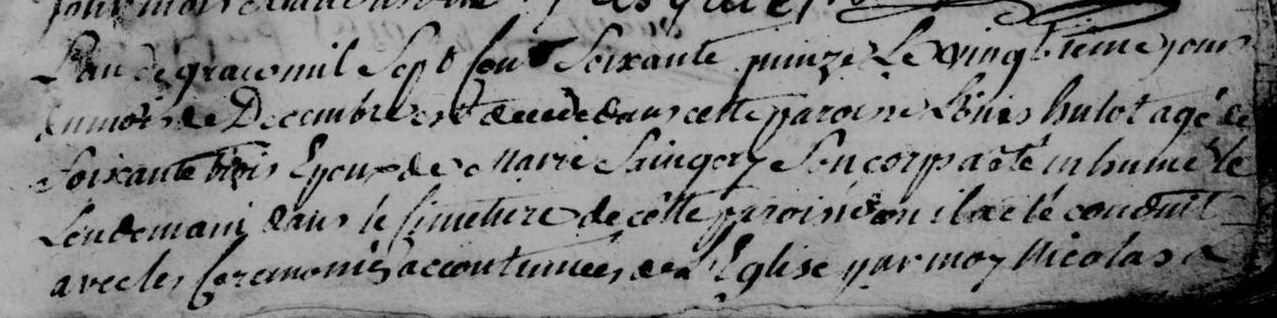 L'an de grace mil Sept Cent Soixante quinze Le vingtieme jour
du mois de Decembre est decedé dans cette paroisse Louis hulot agé de
Soixante trois Epoux de Marie Saingery Son corps a été inhumé le
Lendemain dans le Cimetiere de cette paroisse ou il a eté conduit
avec les Ceremonies accoutumées de L'Eglise par moy Nicolas